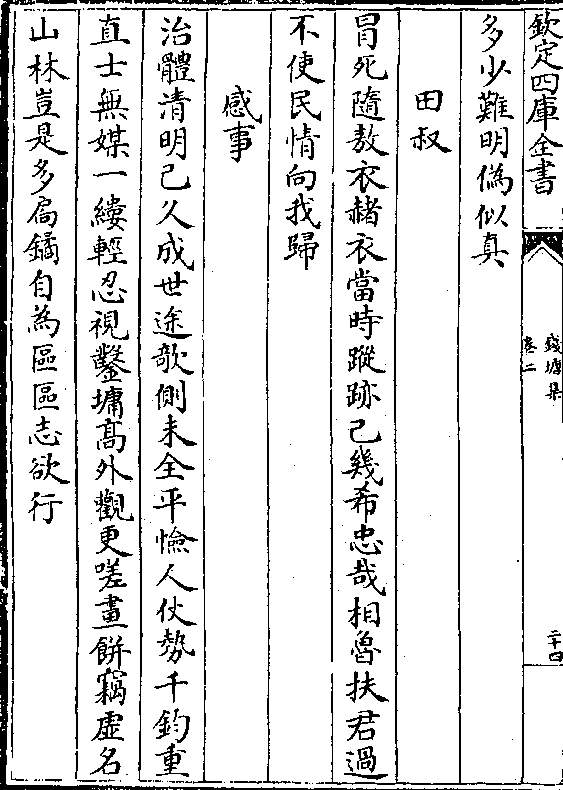 欽定四庫全書
錢塘集
卷二
二十四
多少難明偽似真
田叔
冐死隨敖衣赭衣當時蹤跡已幾希忠哉相魯扶君過
不使民情向我歸
感事
治體清明已久成世途欹側未全平憸人仗勢千鈞重
直士無媒一縷輕忍視鑿墉髙外觀更嗟畫餅竊虛名
山林豈是多扄鐍自為區區志欲行